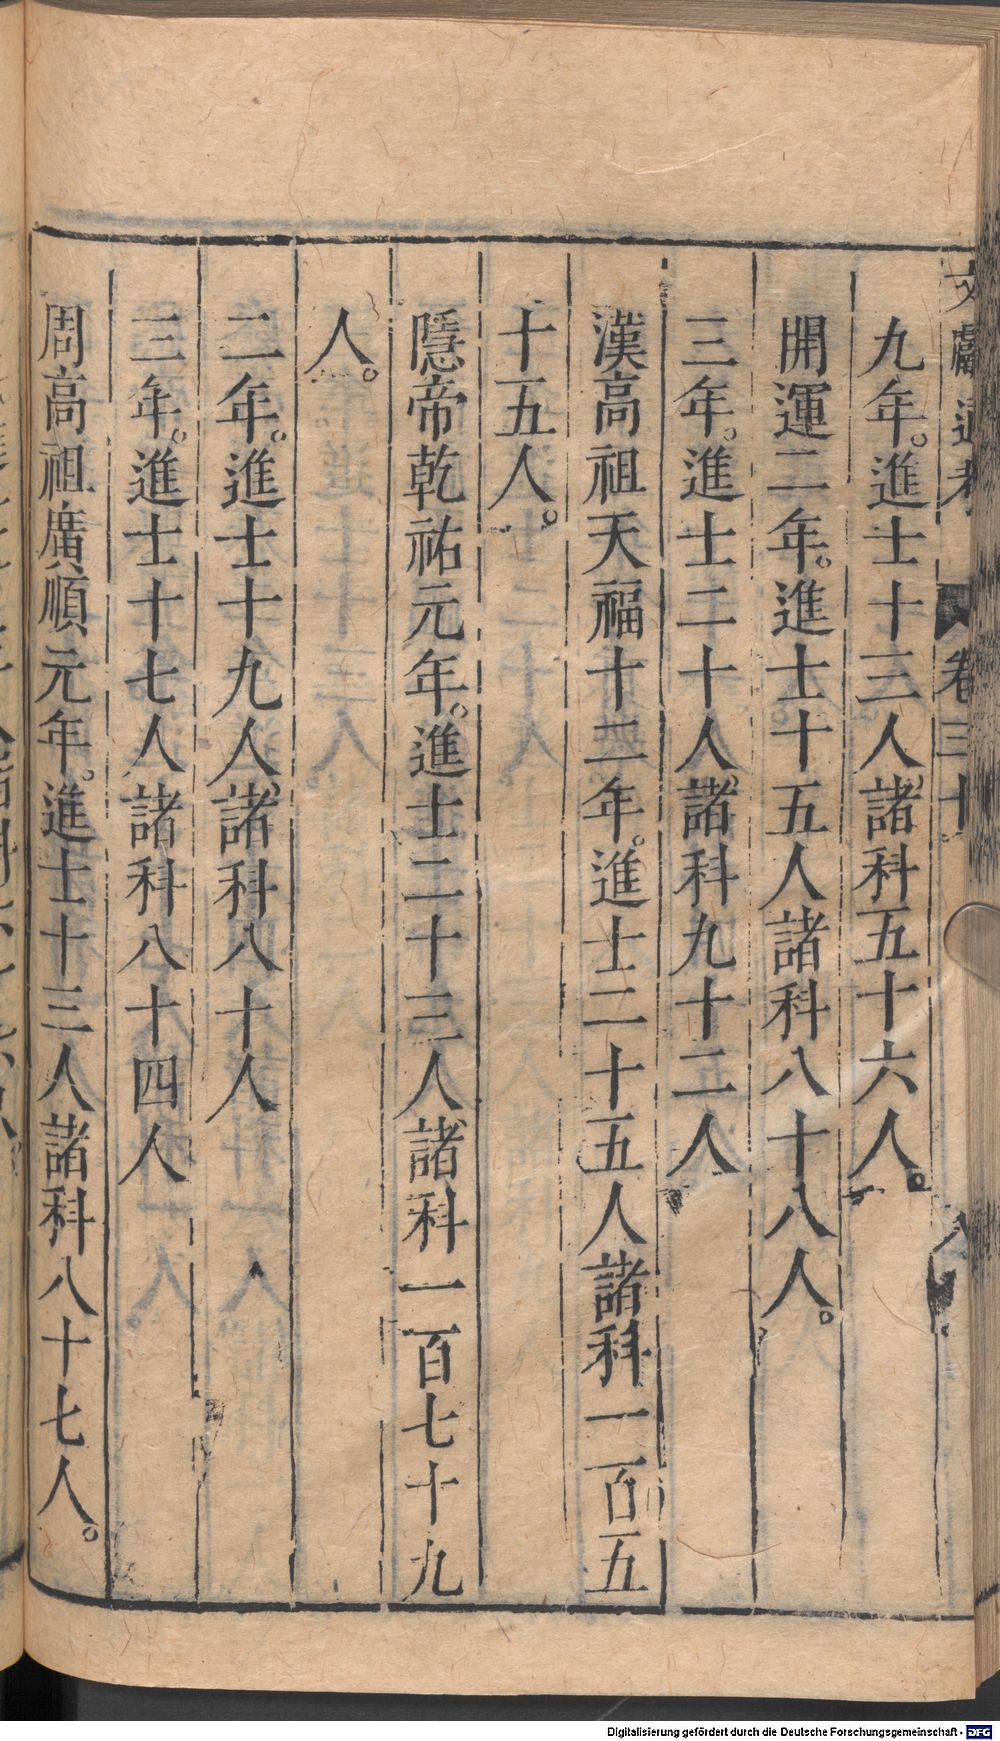 文獻通考 卷三十 八
九年。進士十三人諸科五十六人。
開運二年。進士十五人諸科八十八人。
三年。進士二十人。諸科九十二人
漢高祖天福十二年。進士二十五人諸科一百五
十五人。
隱帝乾祐元年。進士二十三人諸科一百七十九
人。
二年。進士十九人。諸科八十人
三年。進士十七人諸科八十四人
周高祖廣順元年。進士十三人諸科八十七人。
Digitalisierung gefördert durch die Deutsche Forschungsgemeinschaft - DFG